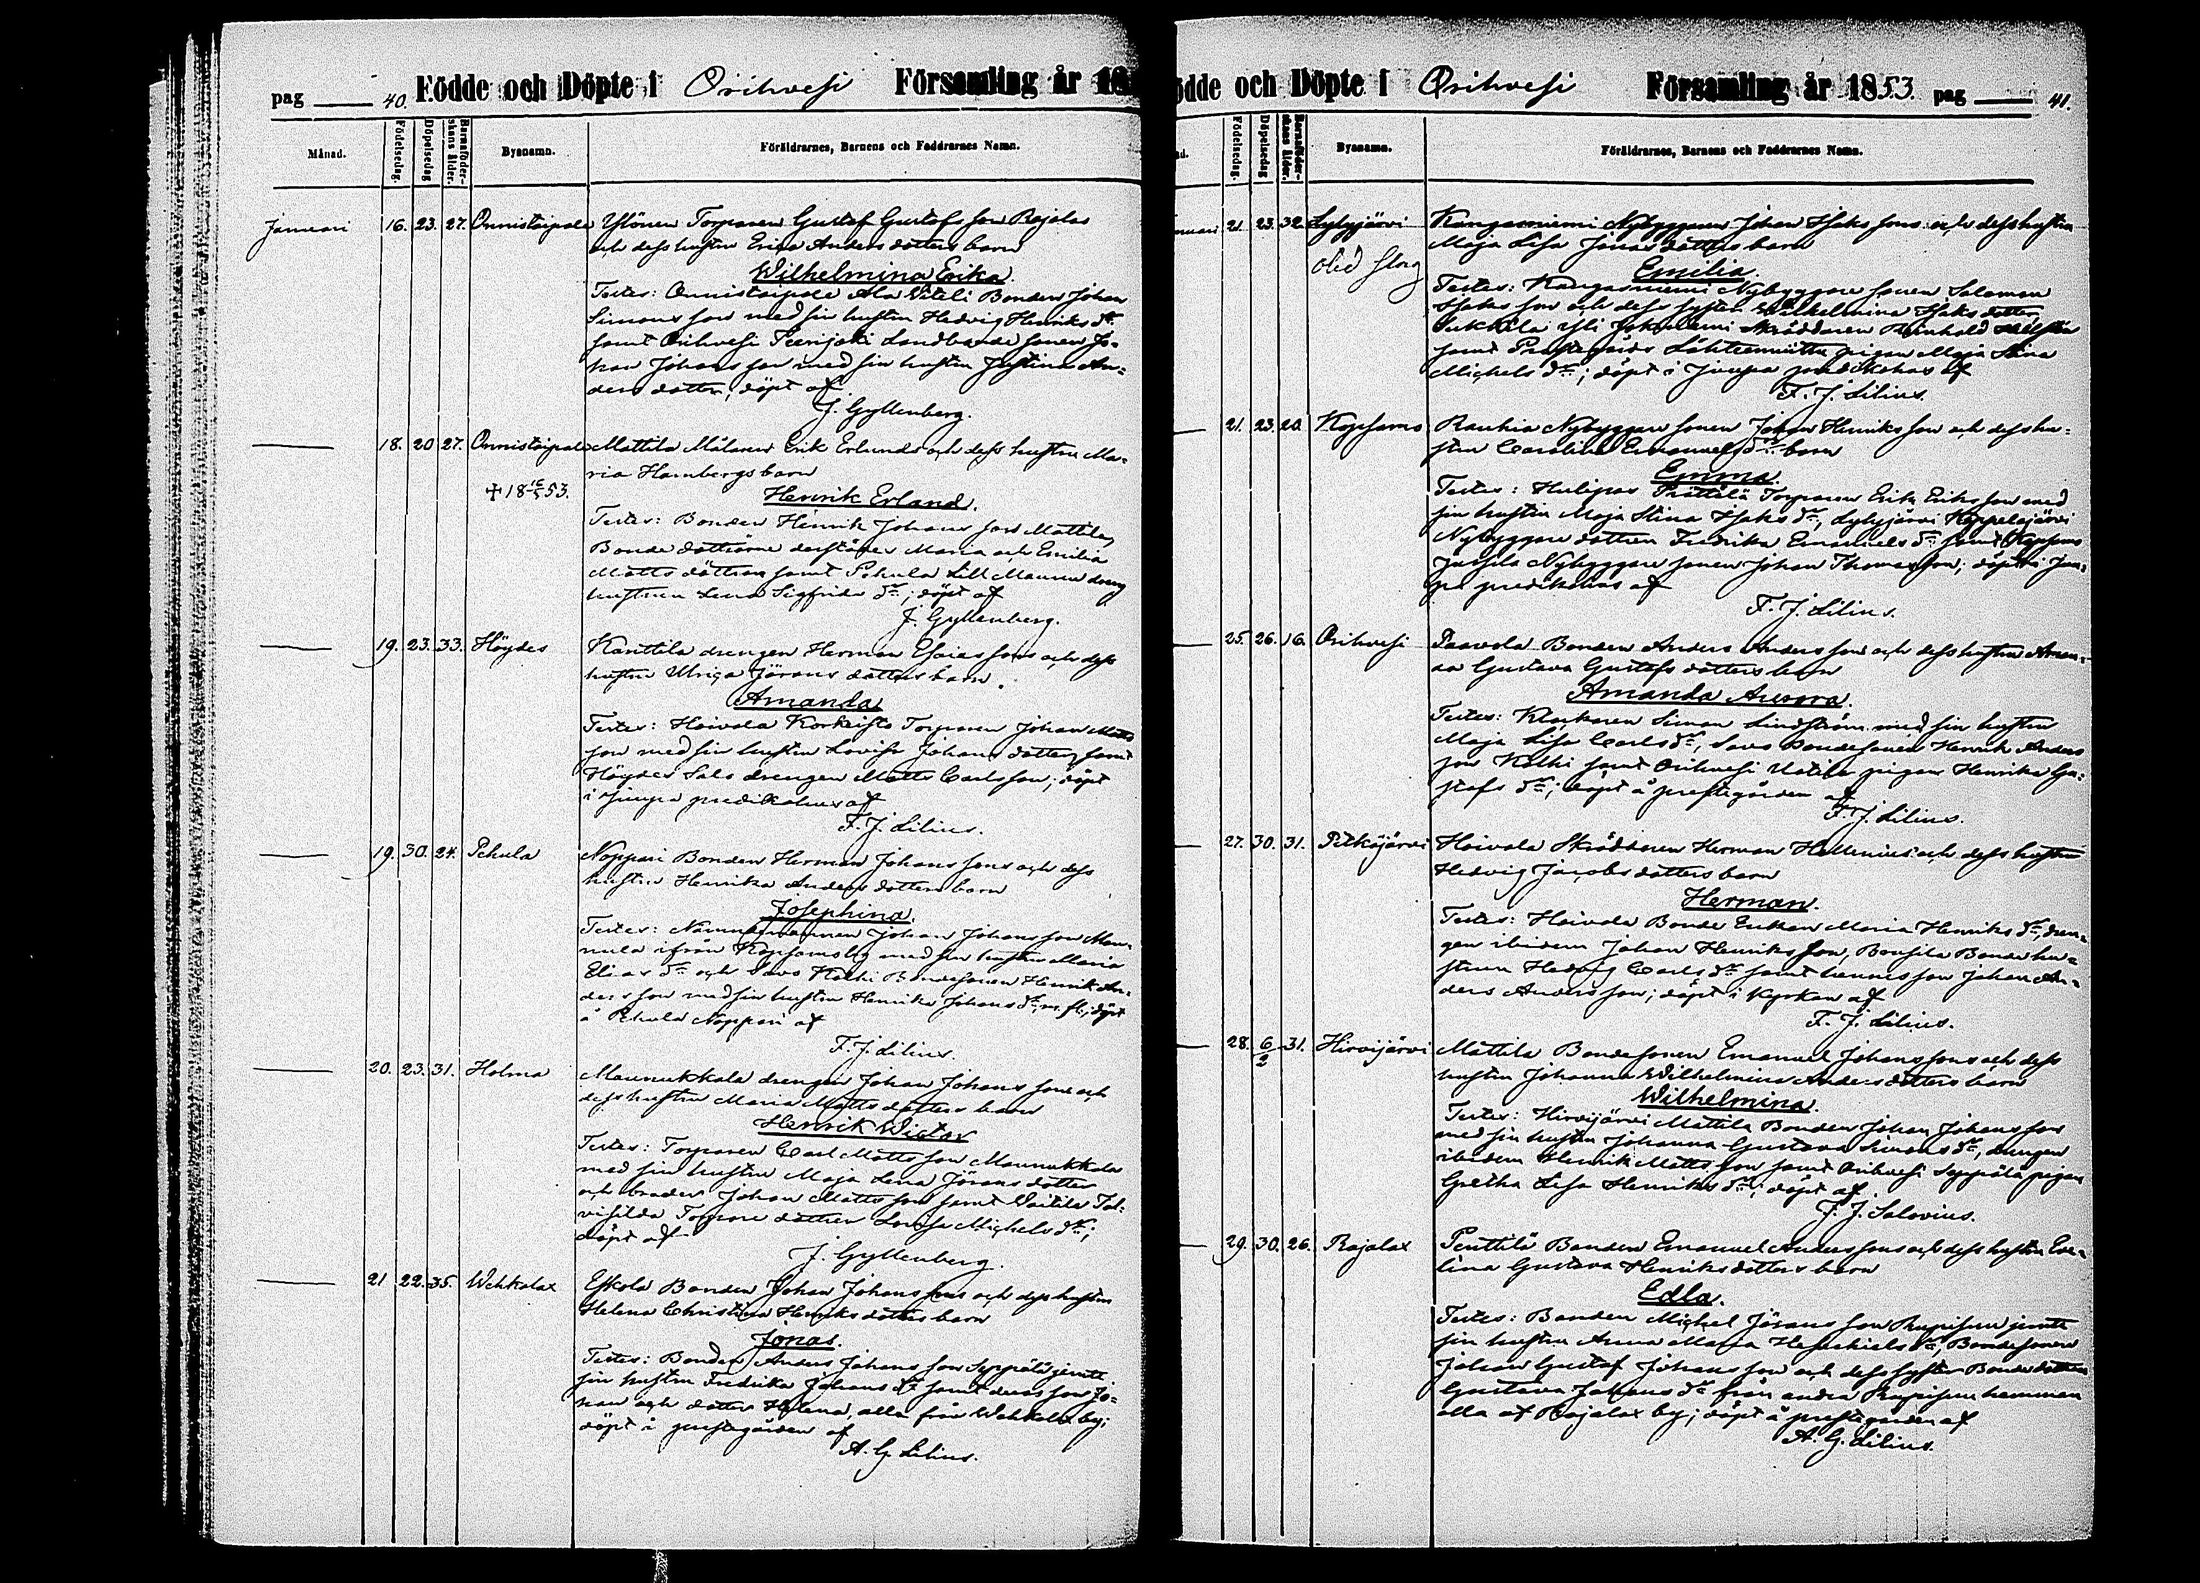 pag 40. Födde och Döpte i Orihvesi Församling år 18
Månad. Födelsedag. Döpelsedag Barnaföderskans ålder. Bysnamn. Föräldrarnes, Barnens och Faddrarnes Namn.
Januari 16. 23. 27. Onnistaipale Ylönen Torparen Gustaf Gustafs son Rajalas
och dess hustru Erica Anders dotters barn
Wilhelmina Erika.
Testes: Onnistaipale Ala Viteli Bonden Johan
Simons son med sin hustru Hedvig Henriks dr
samt Orihvesi Landbonde sonen Jo-
han Johans son med sin hustru Justina An-
ders dotter, döpt af
J. Gyllenberg.
18. 20 27. Onnistaipale Mattila Målaren Erik Erlunds och dess hustru Ma-
ria Hambergs barn
✝ 18 16/5 53.
Henrik Erland.
Testes: Bonden Henrik Johans son Mattila,
Bonde döttrarne derstädes Maria och Emilia
Matts döttrar samt Pehula Lill Maunu dreng
hustrun Lena Sigfrids dr; döpt af
J. Gyllenberg.
19. 23. 33. Höydes Kanttila drengen Herman Esaias sons och dess
hustru Ulrica Jörans dotters barn.
Amanda
Testes: Hoivala Korkeisto Torparen Johan Matts
son med sin hustru Lovisa Johans dotter, samt
Höydes Salo drengen Matts Carlsson; döpt
i Juupa predikohus af
F. J. Lilius.
19. 30. 24. Pehula Noppari Bonden Herman Johans sons och dess
hustru Henrika Anders dotters barn
Josephina.
Testes: Nämndemannen Johan Johans son Man-
nula ifrån Kopsamo by med sin hustru Maria
Elias dr och Savo Kolhi Bondesonen Henrik An-
ders son med sin hustru Henrika Johans dr, m. fl.; döpt
å Pehula Noppari af
F. J. Lilius.
20. 23. 31. Holma Maunukkala drengen Johan Johans sons och
dess hustru Maria Matts dotters barn
Henrik Wictor
Testes: Torparen Carl Matts son Maunukkala
med sin hustru Maja Lena Jörans dotter
och broder Johan Matts son samt Waitila Tal-
visilda Torpare dottren Lovisa Michels dr;
döpt af
J. Gyllenberg.
21 22. 35. Wehkalax Eskola Bonden Johan Johans sons och dess hustru
Helena Christina Henriks dotters barn
Jonas.
Testes: Bonden Anders Johans son Seppälä jemte
sin hustru Fredrika Johans dr samt deras son Jo-
han och dotter Helena, alla från Wehkalax by;
döpt å prestegården af
A. G. Lilius.
ödde och Döpte i Orihvesi Församling år 1853. pag 41.
ad. Födelsedag. Döpelsedag Barnaföderskans ålder. Bysnamn. Föräldrarnes, Barnens och Faddrarnes Namn.
nuari 21. 23. 32. Lylyjärvi Kangasniemi Nybyggaren Johan Isaks sons och dess hustru
Maja Lisa Jonas dotters barn
Emilia.
Testes: Kangasniemi Nybyggare sonen Salomon
Isaks son och dess syster Wilhelmina Isaks dotter,
Yli Skräddaren Reinhold
samt Prestegårds pigan Maja Stina
Michels dr; döpt i Juupa predikohus af
F. J. Lilius.
21. 23. 20. Kopsamo Rauhia Nybyggare sonen Johan Henriks son och dess hu-
stru Carolina Emanuels drs barn
Emma.
Testes: Hulipas Prittilä Torparen Erik Eriks son med
sin hustru Maja Stina Isaks dr, Lylyjärvi Keppelejärvi
Nybyggare dottren Fredrika Emanuels dr samt Kopsamo
Nybyggare sonen Johan Thomasson; döpt i Juu-
pa predikohus af
F. J. Lilius.
25. 26. 16. Orihvesi Paavola Bonden Anders Anders son och dess hustru Aman-
da Gustava Gustafs dotters barn
Amanda Aurora.
Testes: Klockaren Simon Lindström med sin hustru
Maja Lisa Carls dr, Savo Bondesonen Henrik Anders
son Kolhi samt Orihvesi Uotila pigan Henrika Gu-
stafs dr; döpt å prestegården af
F. J. Lilius.
27. 30. 31. Pitkäjärvi Hoivala Skräddaren Herman Hellenius och dess hustru
Hedvig Jacobs dotters barn
Herman.
Testes: Hoivala Bonde Enkan Maria Henriks dr, dren-
gen ibidem Johan Henriks son, Bonsila Bonde hu-
strun Hedvig Carls dr samt hennes son Johan An-
ders Anders son; döpt i Kyrkan af
F. J. Lilius.
28. 6/2 31. Hirvijärvi Mattila Bondesonen Emanuel Johans sons och dess
hustru Johanna Wilhelmina Anders dotters barn
Wilhelmina.
Testes: Hirvijärvi Mattila Bonden Johan Johans son
med sin hustru Johanna Gustava Simons dr, drengen
ibidem Henrik Matts son samt Orihvesi Seppälä pigan
Gretha Lisa Henriks dr; döpt af
F. J. Salovius.
29. 30. 26. Rajalax Penttilä Bonden Emanuel Anders sons och dess hustru Eve-
lina Gustava Henriks dotters barn
Edla.
Testes: Bonden Michel Jörans son Rupisun jemte
sin hustru Anna Maria Heskiels dr, Bondesonen
Johan Gustaf Johans son och dess syster Bonde dottren
Gustava Johans dr från andra Rupisun hemman
alla af Rajalax by; döpt å prestegården af
A. G. Lilius.